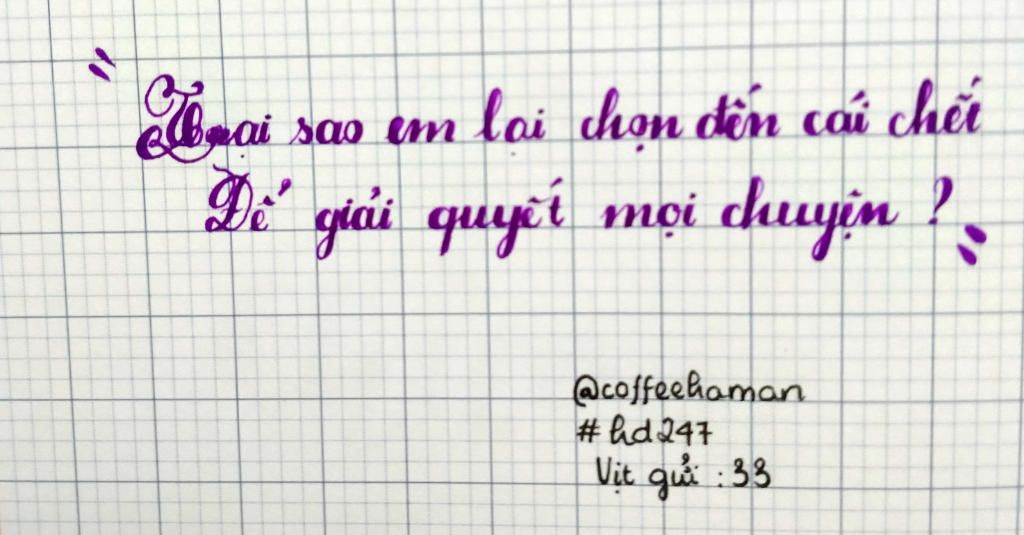 "Tại sao em lại chọn đến cái chết
Để giải quyết mọi chuyện ? "
@coffeehaman
#hd247
Vịt gửi : 33